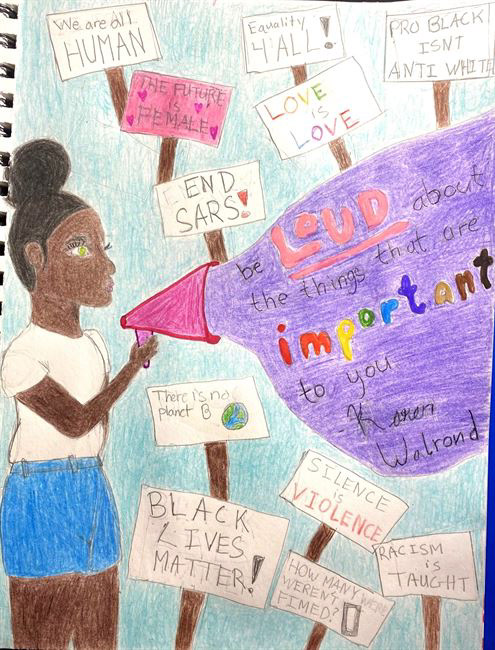 We are all
HUMAN
Equality
4 ALL!
PRO BLACK
ISNT
ANTI WHITE
THE FUTURE
is
FEMALE
LOVE
is
LOVE
END
SARS!
be LOUD about
the things that are
important
to you
-Karen
Walrond
There is no
planet B
SILENCE
is
VIOLENCE
BLACK
LIVES
MATTER!
HOW MANY
WEREN'T
FIMED?
RACISM
is
TAUGHT